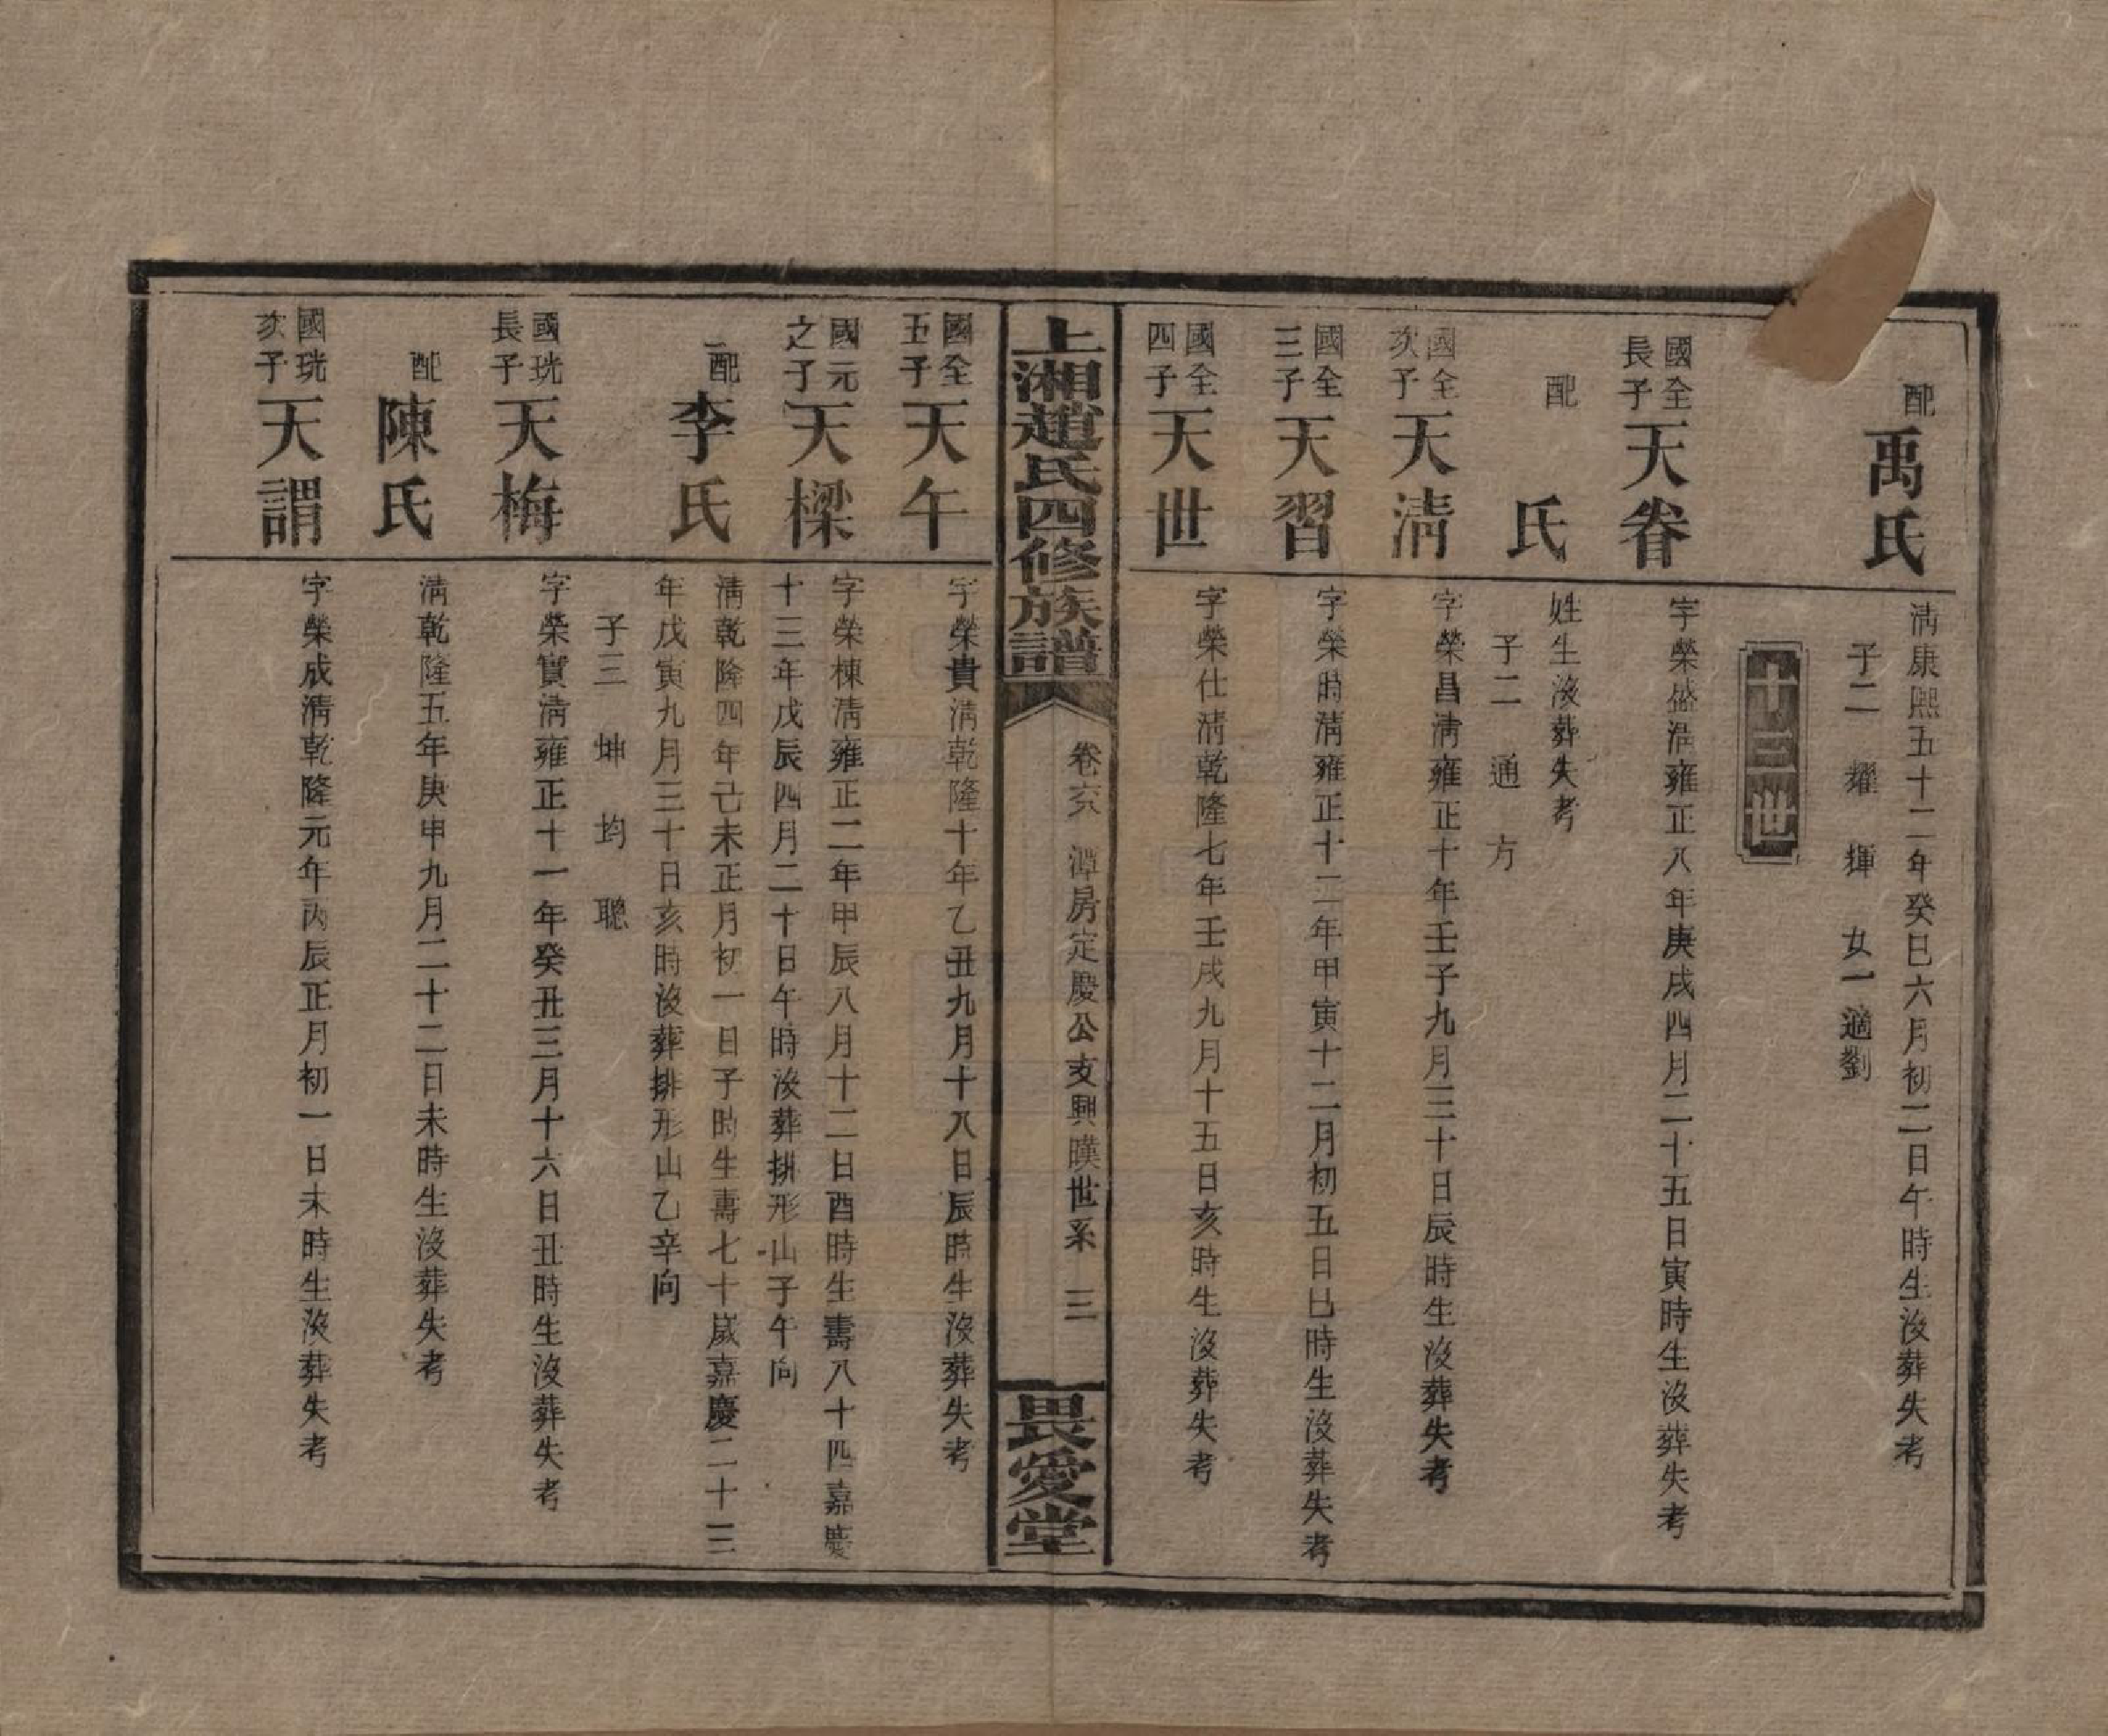 配禹氏
清康熙五十二年癸巳六月初二日午時生沒葬失考
子二 耀 揮 女一適劉
十三世
國全長子天眷
字榮盛清雍正八年庚戌四月二十五日寅時生沒葬失考
配 氏
姓生沒葬失考
子二 通 方
國全次子天清
字榮昌清雍正十年壬子九月三十日辰時生沒葬失考
國全三子天習
字榮時清雍正十二年甲寅十二月初五日巳時生沒葬失考
國全四子天世
字榮仕清乾隆七年壬戌九月十五日亥時生沒葬失考
上湘趙氏四修族譜
卷六 潭房定慶公支興暵世系 三
畏愛堂
國全五子天午
字榮貴清乾隆十年乙丑九月十八日辰時生沒葬失考
國元之子天樑
字榮棟清雍正二年甲辰八月十二日酉時生壽八十四嘉慶
十三年戊辰四月二十日午時沒葬排形山子午向
配李氏
清乾隆四年己未正月初一日子時生壽七十歲嘉慶二十三
年戊寅九月三十日亥時沒葬排形山乙辛向
子三 坤 均 聰
國珖長子天梅
字榮實清雍正十一年癸丑三月十六日丑時生沒葬失考
配陳氏
清乾隆五年庚申九月二十二日未時生沒葬失考
國珖次子天謂
字榮成清乾隆元年丙辰正月初一日未時生沒葬失考